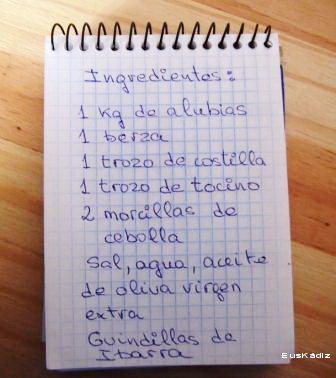 Ingredientes:
1 kg de alubias
1 berza
1 trozo de costilla
1 trozo de tocino
2 morcillas de
cebolla
Sal, agua, aceite
de oliva virgen
extra
Guindillas de
Ibarra
EusKádiz